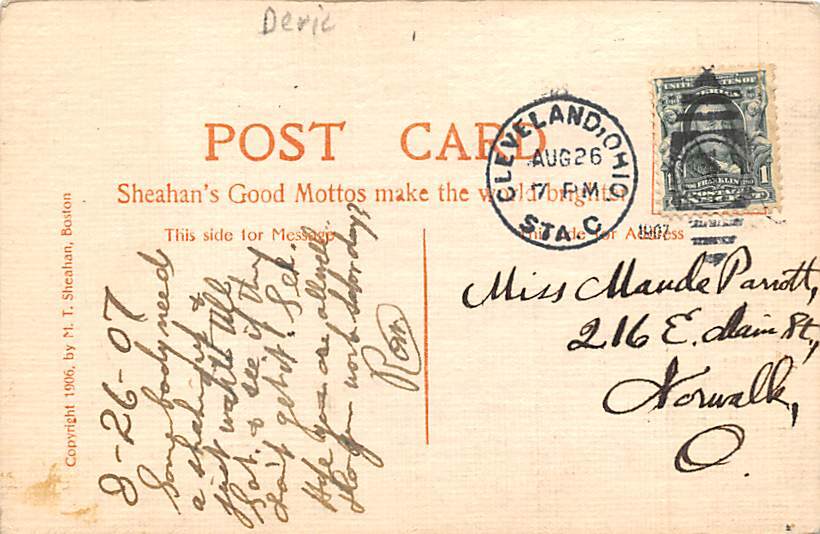 Deric
POST CARD
Sheahan's Good Mottos make the world brighter
This side for Message
This side for Address
Copyright 1906, by M. T. Sheahan, Boston
CLEVELAND, OHIO
AUG 26
7 PM
1907
STA. C
UNITED STATES OF
AMERICA
1
FRANKLIN
1
POSTAGE
8-26-07
Somebody need
a
just wait till
Sat. & see if they
don't get it.
Hope you are all well.
work Saturday?
Miss Maude Parrott,
216 E. Main St.,
Norwalk,
O.